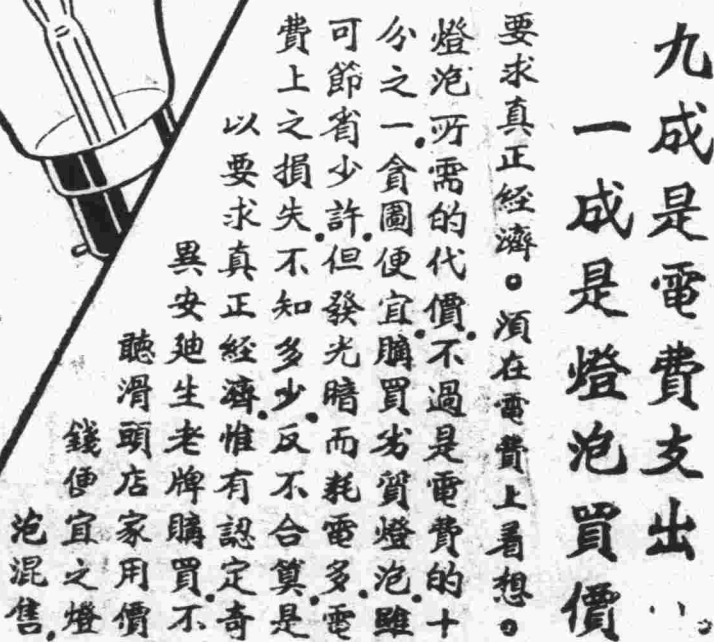 九成是電費支出
一成是燈泡買價
要求真正經濟。須在電費上着想。
燈泡所需的代價.不過是電費的十
分之一.貪圖便宜.購買劣質燈泡.雖
可節省少許.但發光暗而耗電多.電
費上之損失.不知多少.反不合算.是
以要求真正經濟.惟有認定奇
異安廸生老牌購買.不
聽滑頭店家用價
錢便宜之燈
泡混售.